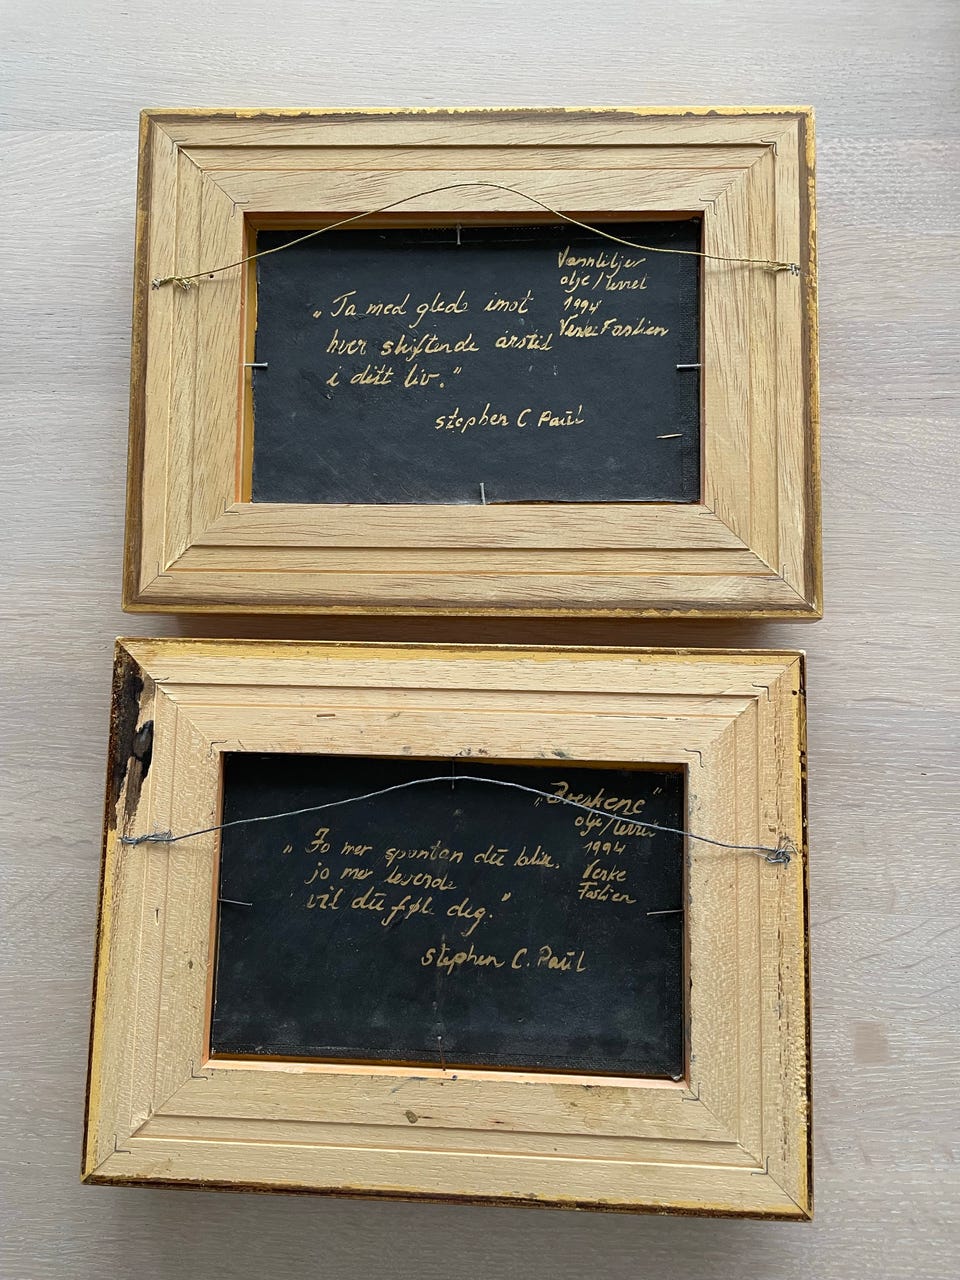 Vannliljer
olje/lerret
1994
„Ta med glede imot
hver skiftende årstid
i ditt liv."
Stephen C Paul
olje/lerret
1994
„Jo mer spontan du blir,
jo mer levende
vil du føle deg."
Stephen C. Paul